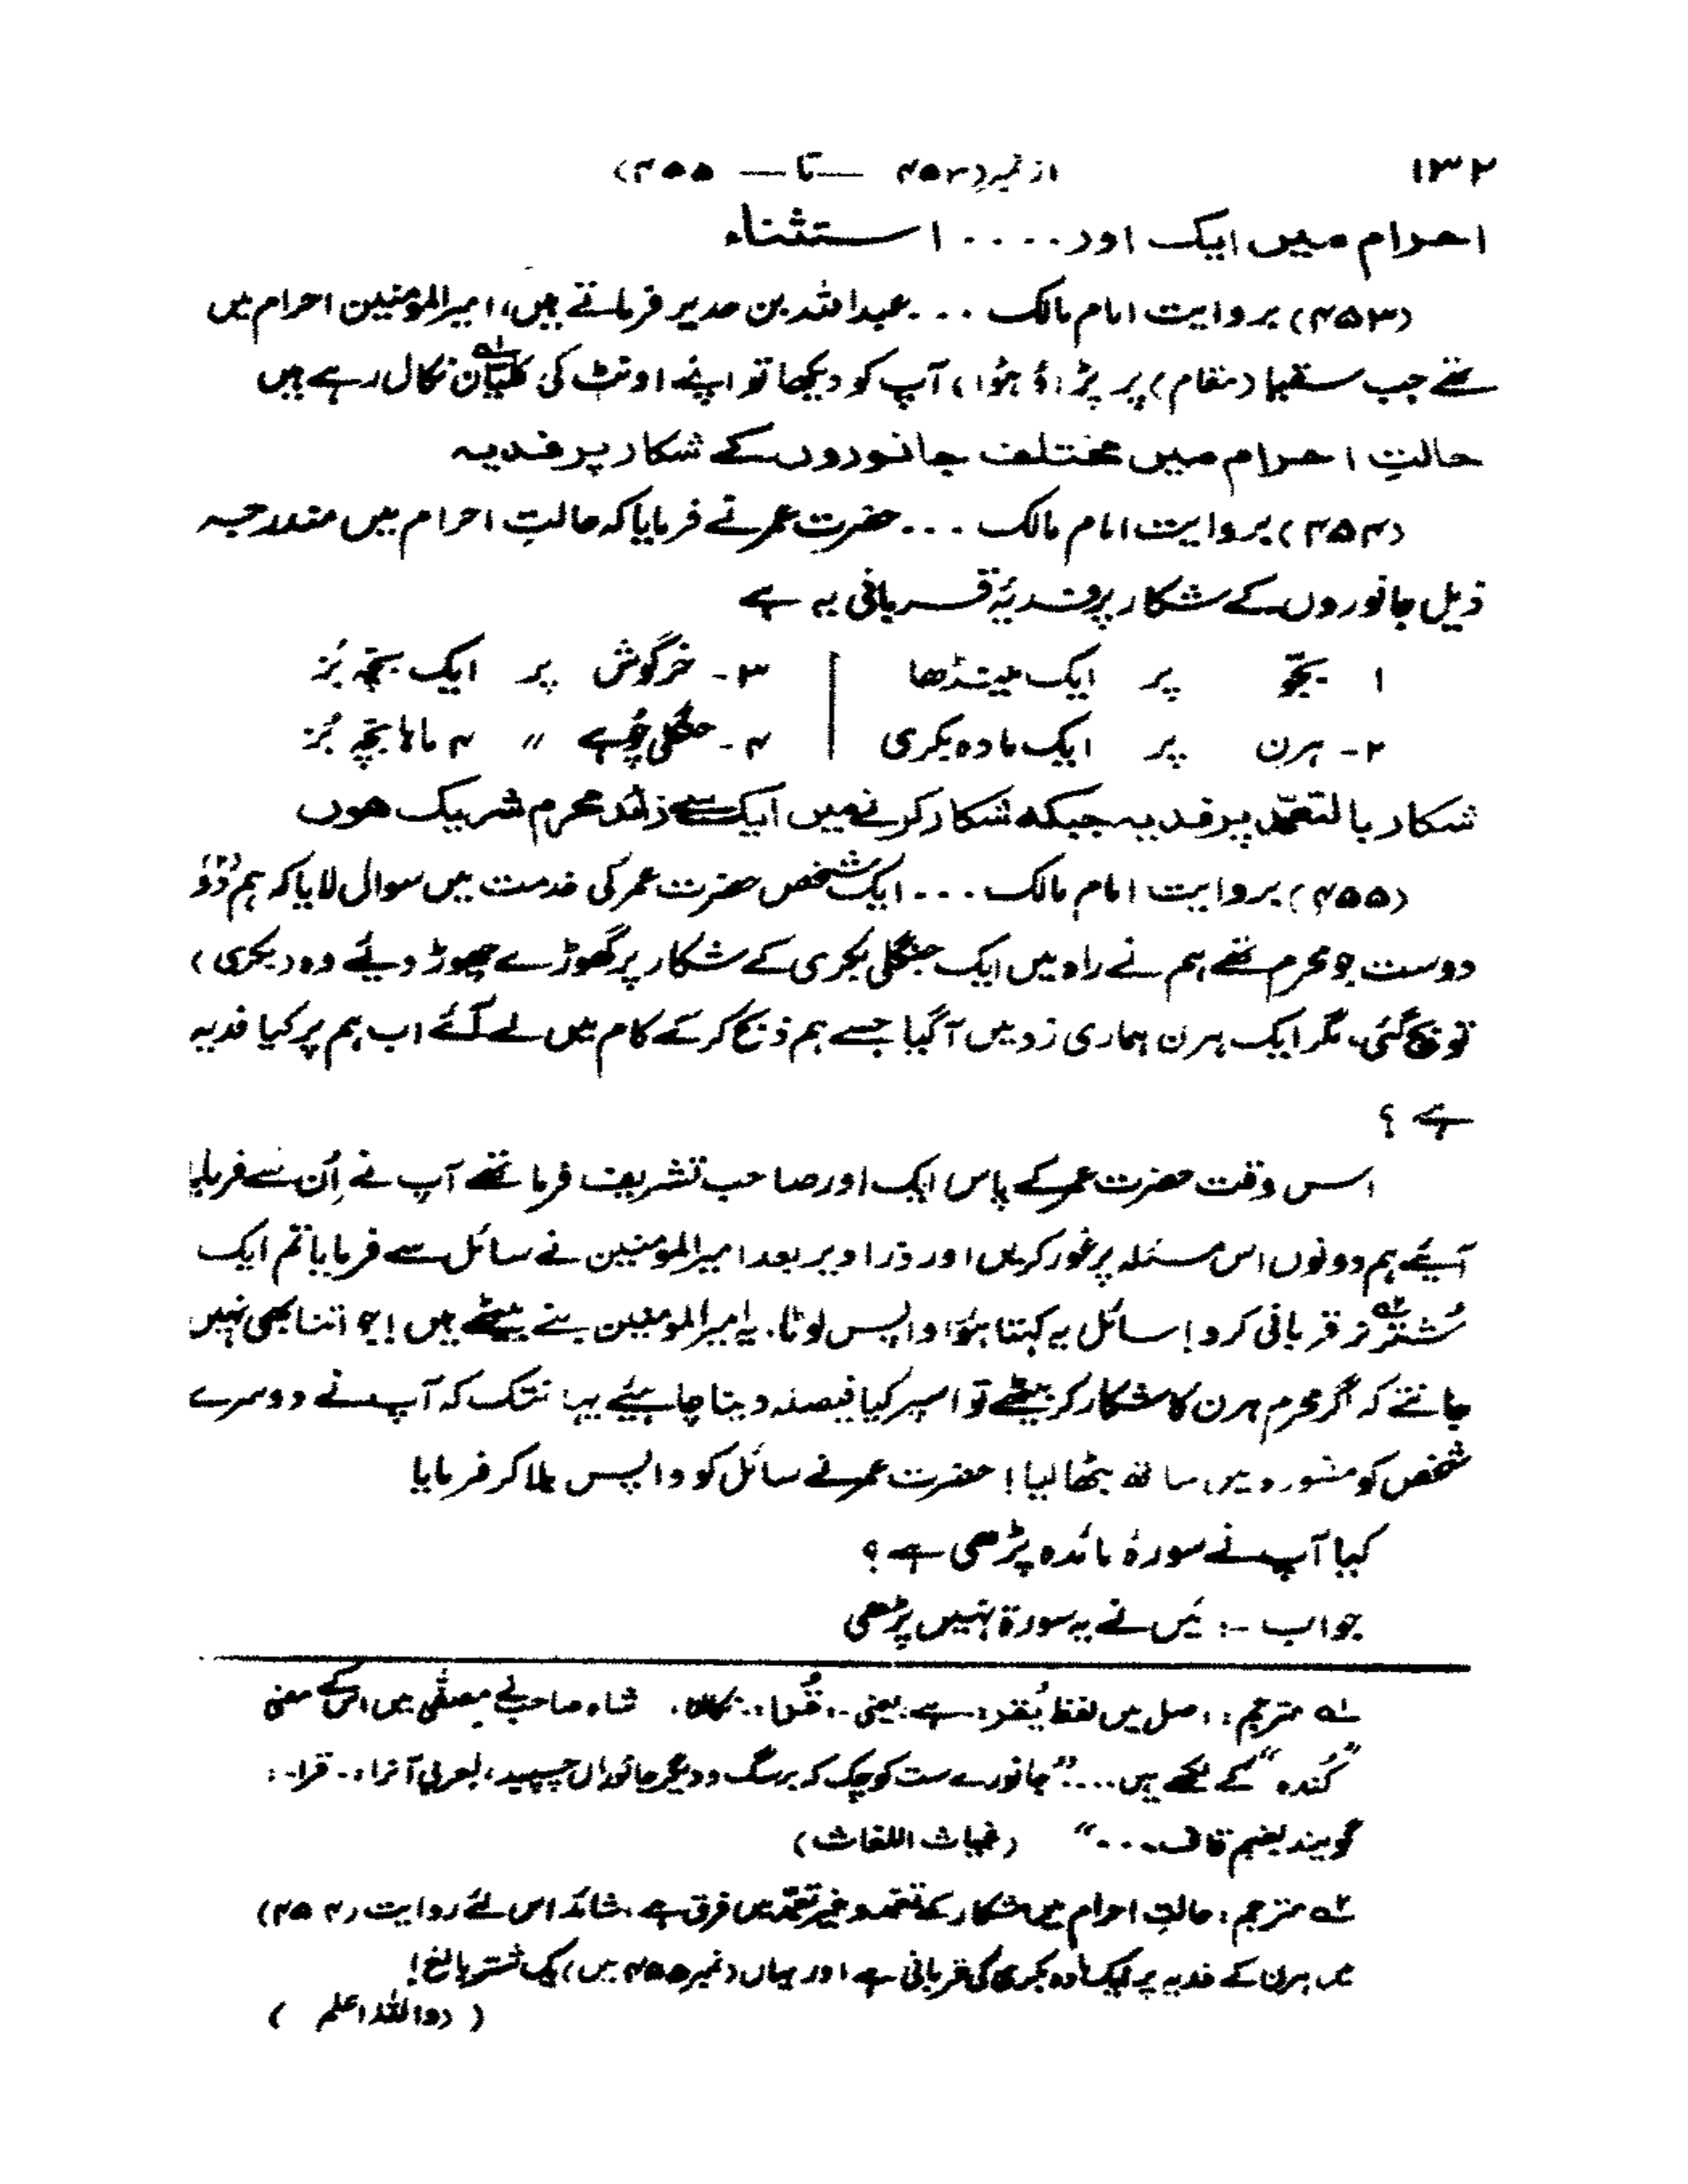 ۱۳۲ از نمبر (۴۵۳ — تا — ۴۵۵)
احرام میں ایک اور .... استثناء
(۴۵۳) بروایت امام مالک ... عبداللہ بن ہدیر فرماتے ہیں، امیرالمومنین احرام میں
تھے جب سقیا (مقام) پر پڑاؤ ہُوا، آپ کو دیکھا تو اپنے اونٹ کی کلیان نکال رہے ہیں
حالتِ احرام میں مختلف جانوروں کے شکار پر فدیہ
(۴۵۴) بروایت امام مالک ... حضرت عمر نے فرمایا کہ حالتِ احرام میں مندرجہ
ذیل جانوروں کے شکار پر فدیۂ قربانی یہ ہے
۱ بجّو پر ایک مینڈھا | ۳- خرگوش پر ایک بچّہ بُز
۲- ہرن پر ایک مادہ بکری | ۴- جنگلی چُوہے 〃 ۴ ماہا بچّہ بُز
شکار بالتعمّد پر فدیہ جبکہ شکار کرنے میں ایک سے زائد محرم شریک ہوں
(۴۵۵) بروایت امام مالک ... ایک شخص حضرت عمر کی خدمت میں سوال لایا کہ ہم دو (۲)
دوست جو محرم تھے ہم نے راہ میں ایک جنگلی بکری کے شکار پر گھوڑے چھوڑ دیئے وہ (بکری)
تو بچ گئی، مگر ایک ہرن ہماری زد میں آگیا جسے ہم ذبح کر کے کام میں لے آئے اب ہم پر کیا فدیہ
ہے ؟
اس وقت حضرت عمر کے پاس ایک اور صاحب تشریف فرما تھے آپ نے اِن سے فرمایا
آیئے ہم دونوں اس مسئلہ پر غور کریں اور ذرا دیر بعد امیرالمومنین نے سائل سے فرمایا تم ایک
شُتر ۲؎ نر قربانی کرو! سائل یہ کہتا ہُوا واپس لوٹا. یہ امیرالمومنین بنے بیٹھے ہیں! جو اتنا بھی نہیں
جانتے کہ اگر محرم ہرن کا شکار کر بیٹھے تو اسپر کیا فیصلہ دینا چاہیئے یہانتک کہ آپ نے دوسرے
شخص کو مشورہ میں ساتھ بٹھا لیا! حضرت عمر نے سائل کو واپس بلا کر فرمایا
کیا آپ نے سورۂ مائدہ پڑھی ہے ؟
جواب :- میں نے یہ سورۃ نہیں پڑھی
۱؎ مترجم: اصل میں لفظ یُقرد ہے یعنی نکالنا. شاہ صاحب نے مصفّٰی میں اس کے معنی
"کُندہ" کے لکھے ہیں... "جانورے ست کوچک کہ برسگ و دیگر جانوراں چسپید، بعربی آنرا قراد
گویند بضم قاف..." (غیاث اللغات)
۲؎ مترجم: حالتِ احرام میں شکار کے تعمّد و غیر تعمّد میں فرق ہے. شائد اس لئے روایت (۴۵۴)
میں ہرن کے فدیہ پر ایک مادہ بکری کی قربانی ہے اور یہاں (نمبر ۴۵۵ میں) یک شتر بالغ!
(واللہ اعلم)